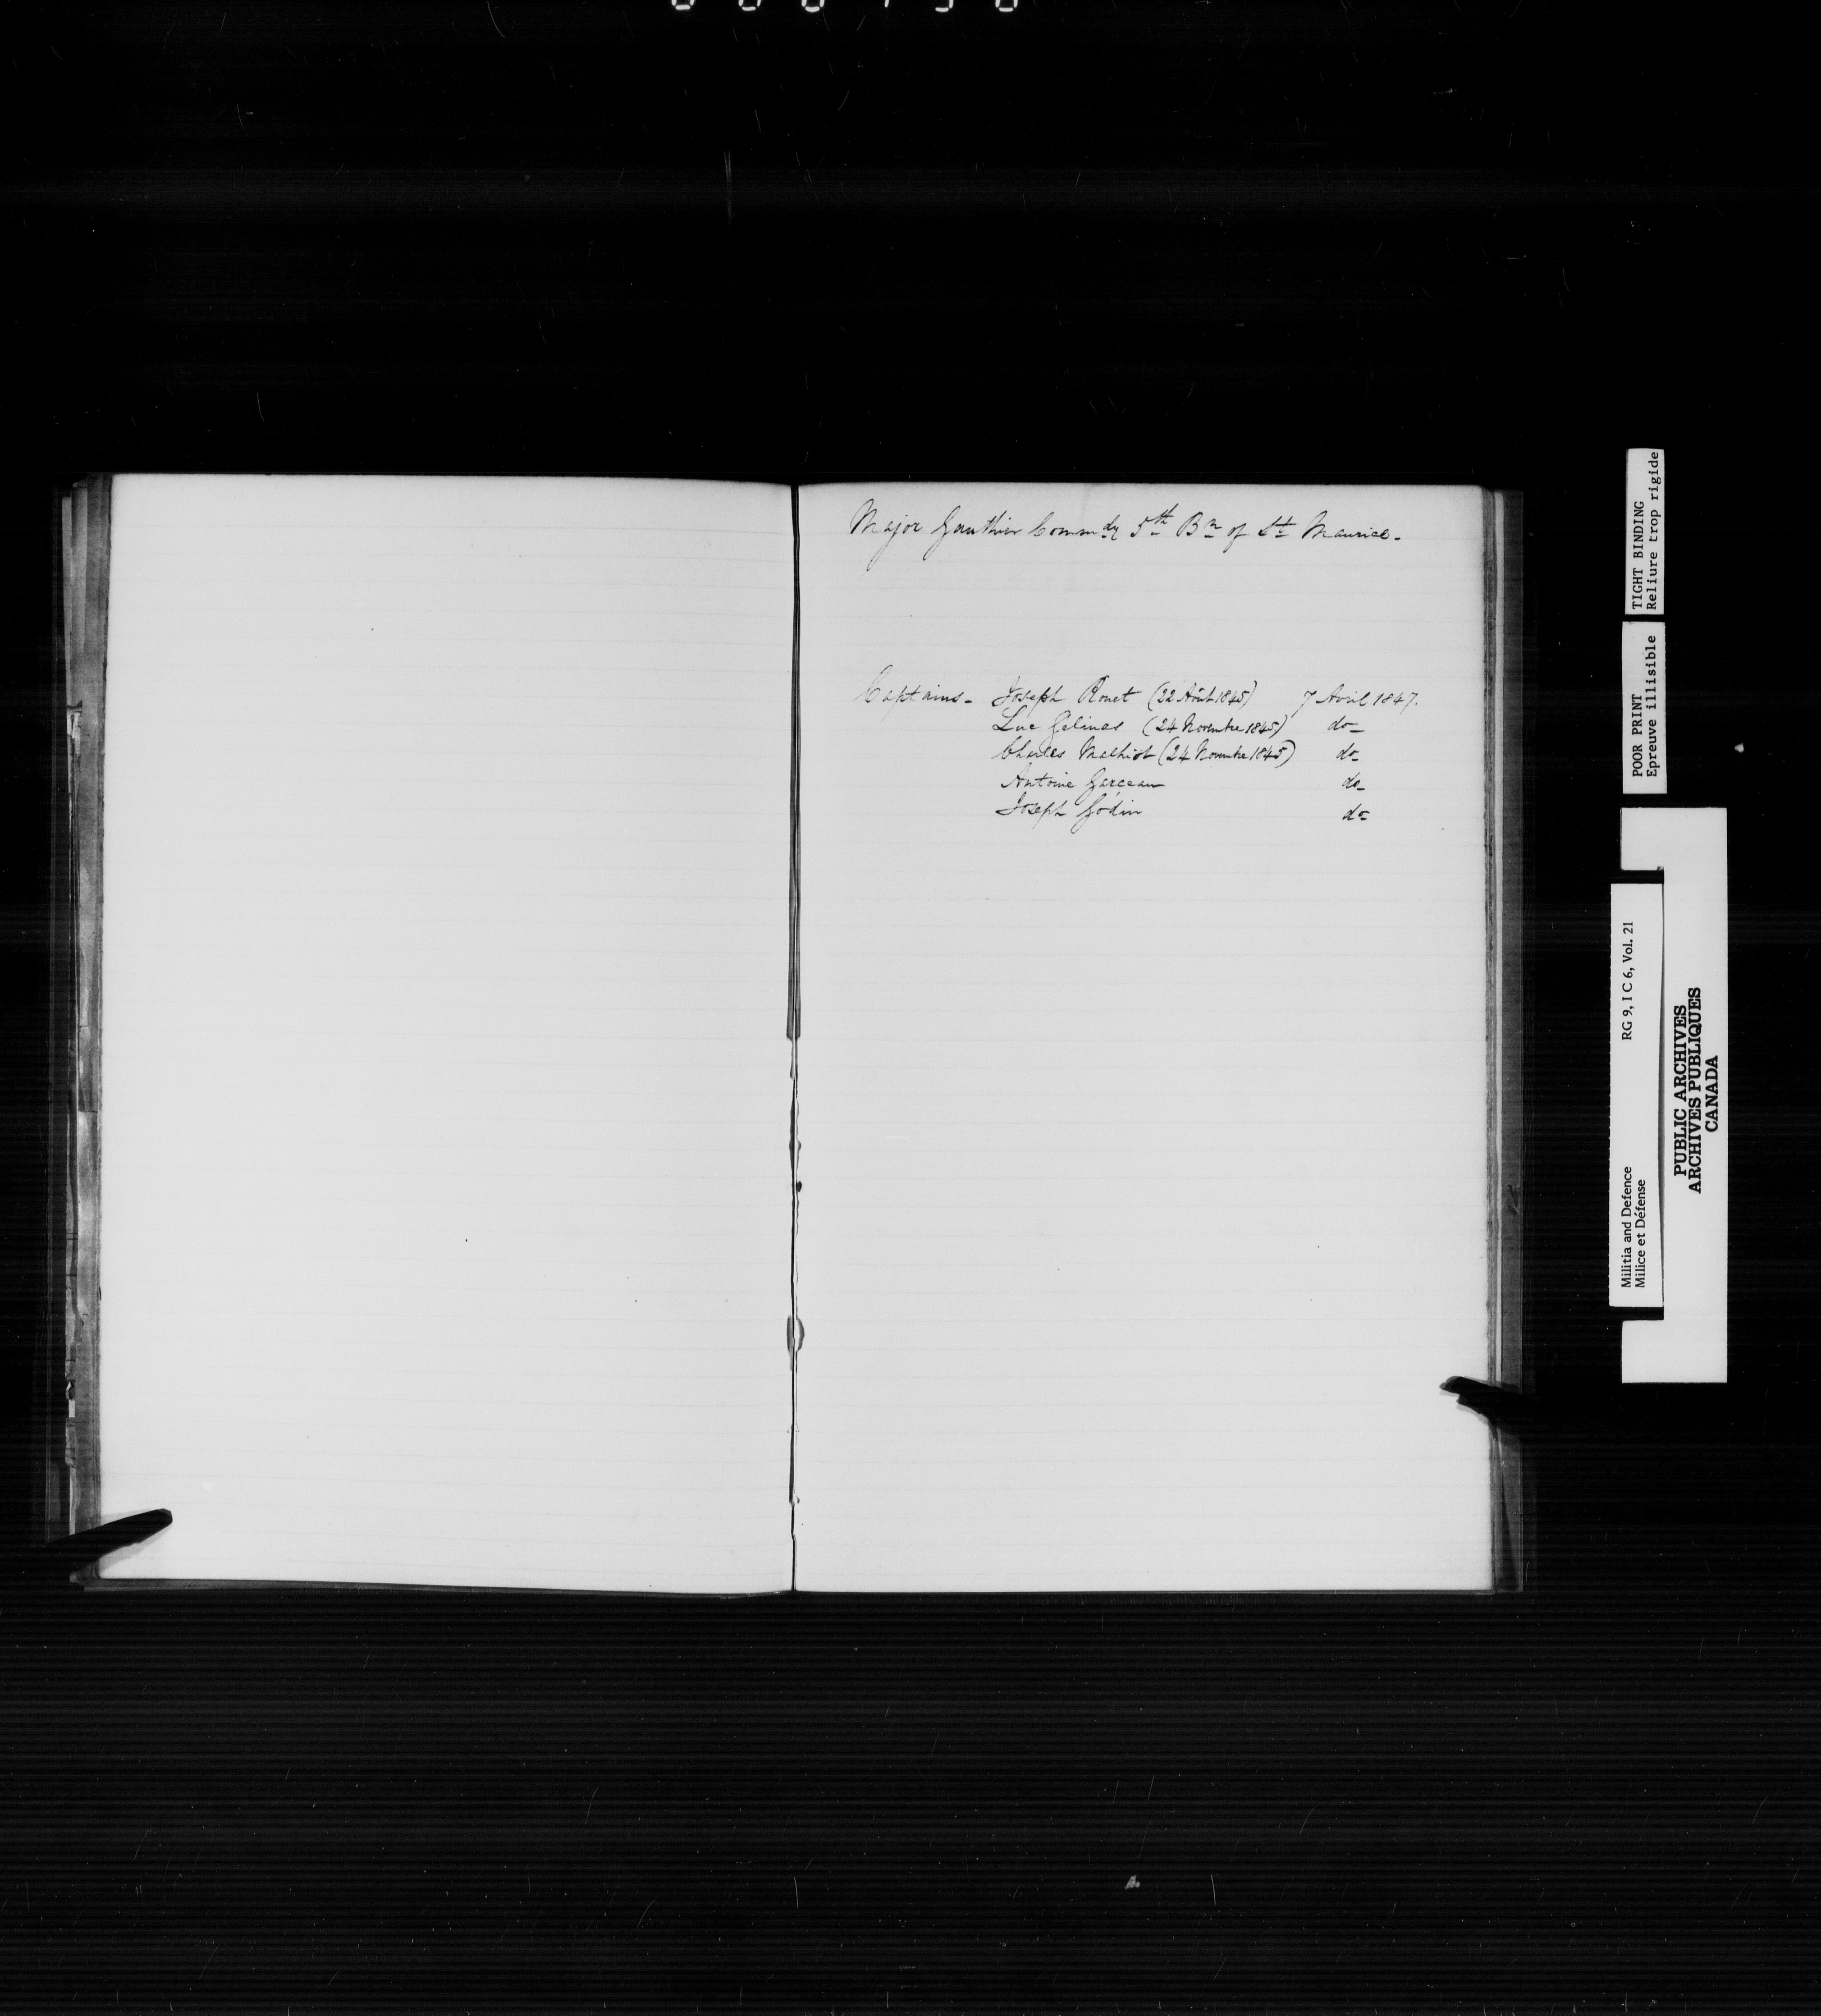 Major Gauthier Commdg 5th Bn of St Maurice-
Captains- Joseph Rouet (22 Août 1845) 7 Avril 1847.
Luc Gelinas (24 Novembre 1845) do-
Charles Malhiot (24 Novembre 1845) do-
Antoine Garceau do-
Joseph Godin do-
TIGHT BINDING
Reliure trop rigide
POOR PRINT
Epreuve illisible
Militia and Defence RG 9, I C 6, Vol. 21
Milice et Défense
PUBLIC ARCHIVES
ARCHIVES PUBLIQUES
CANADA